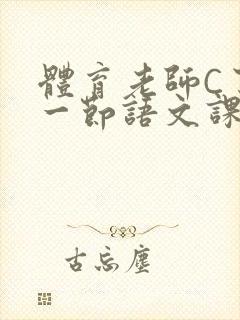 體育老師C
一節語文課
古忘塵